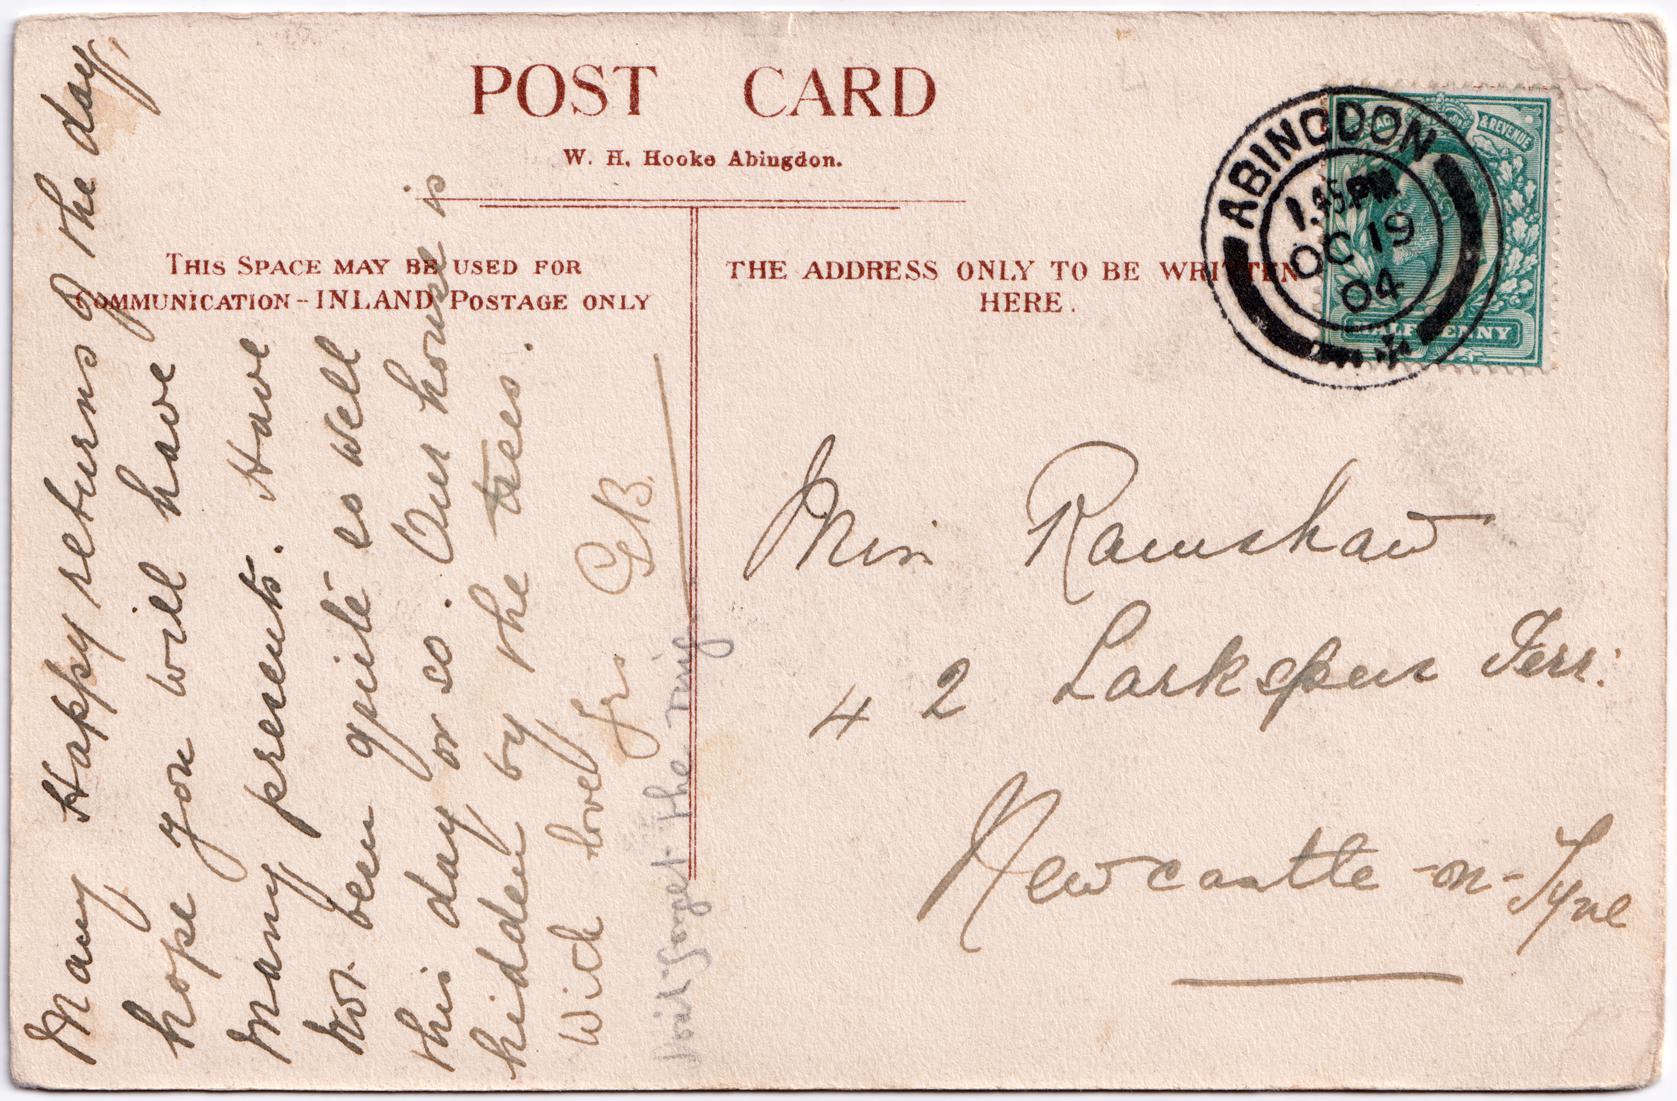 POST CARD
W. H. Hooke Abingdon.
THIS SPACE MAY BE USED FOR
COMMUNICATION - INLAND POSTAGE ONLY
THE ADDRESS ONLY TO BE WRITTEN
HERE.
ABINGDON
1.45PM
OC 19
04
& REVENUE
HALFPENNY
Many Happy returns of the day,
hope you will have
many presents. Have
not been quite so well
this day or so. Our house is
hidden by the trees.
With love fr G.B.
Don't forget the ring
Miss Ramshaw
42 Larkspur Terr:
Newcastle-on-Tyne